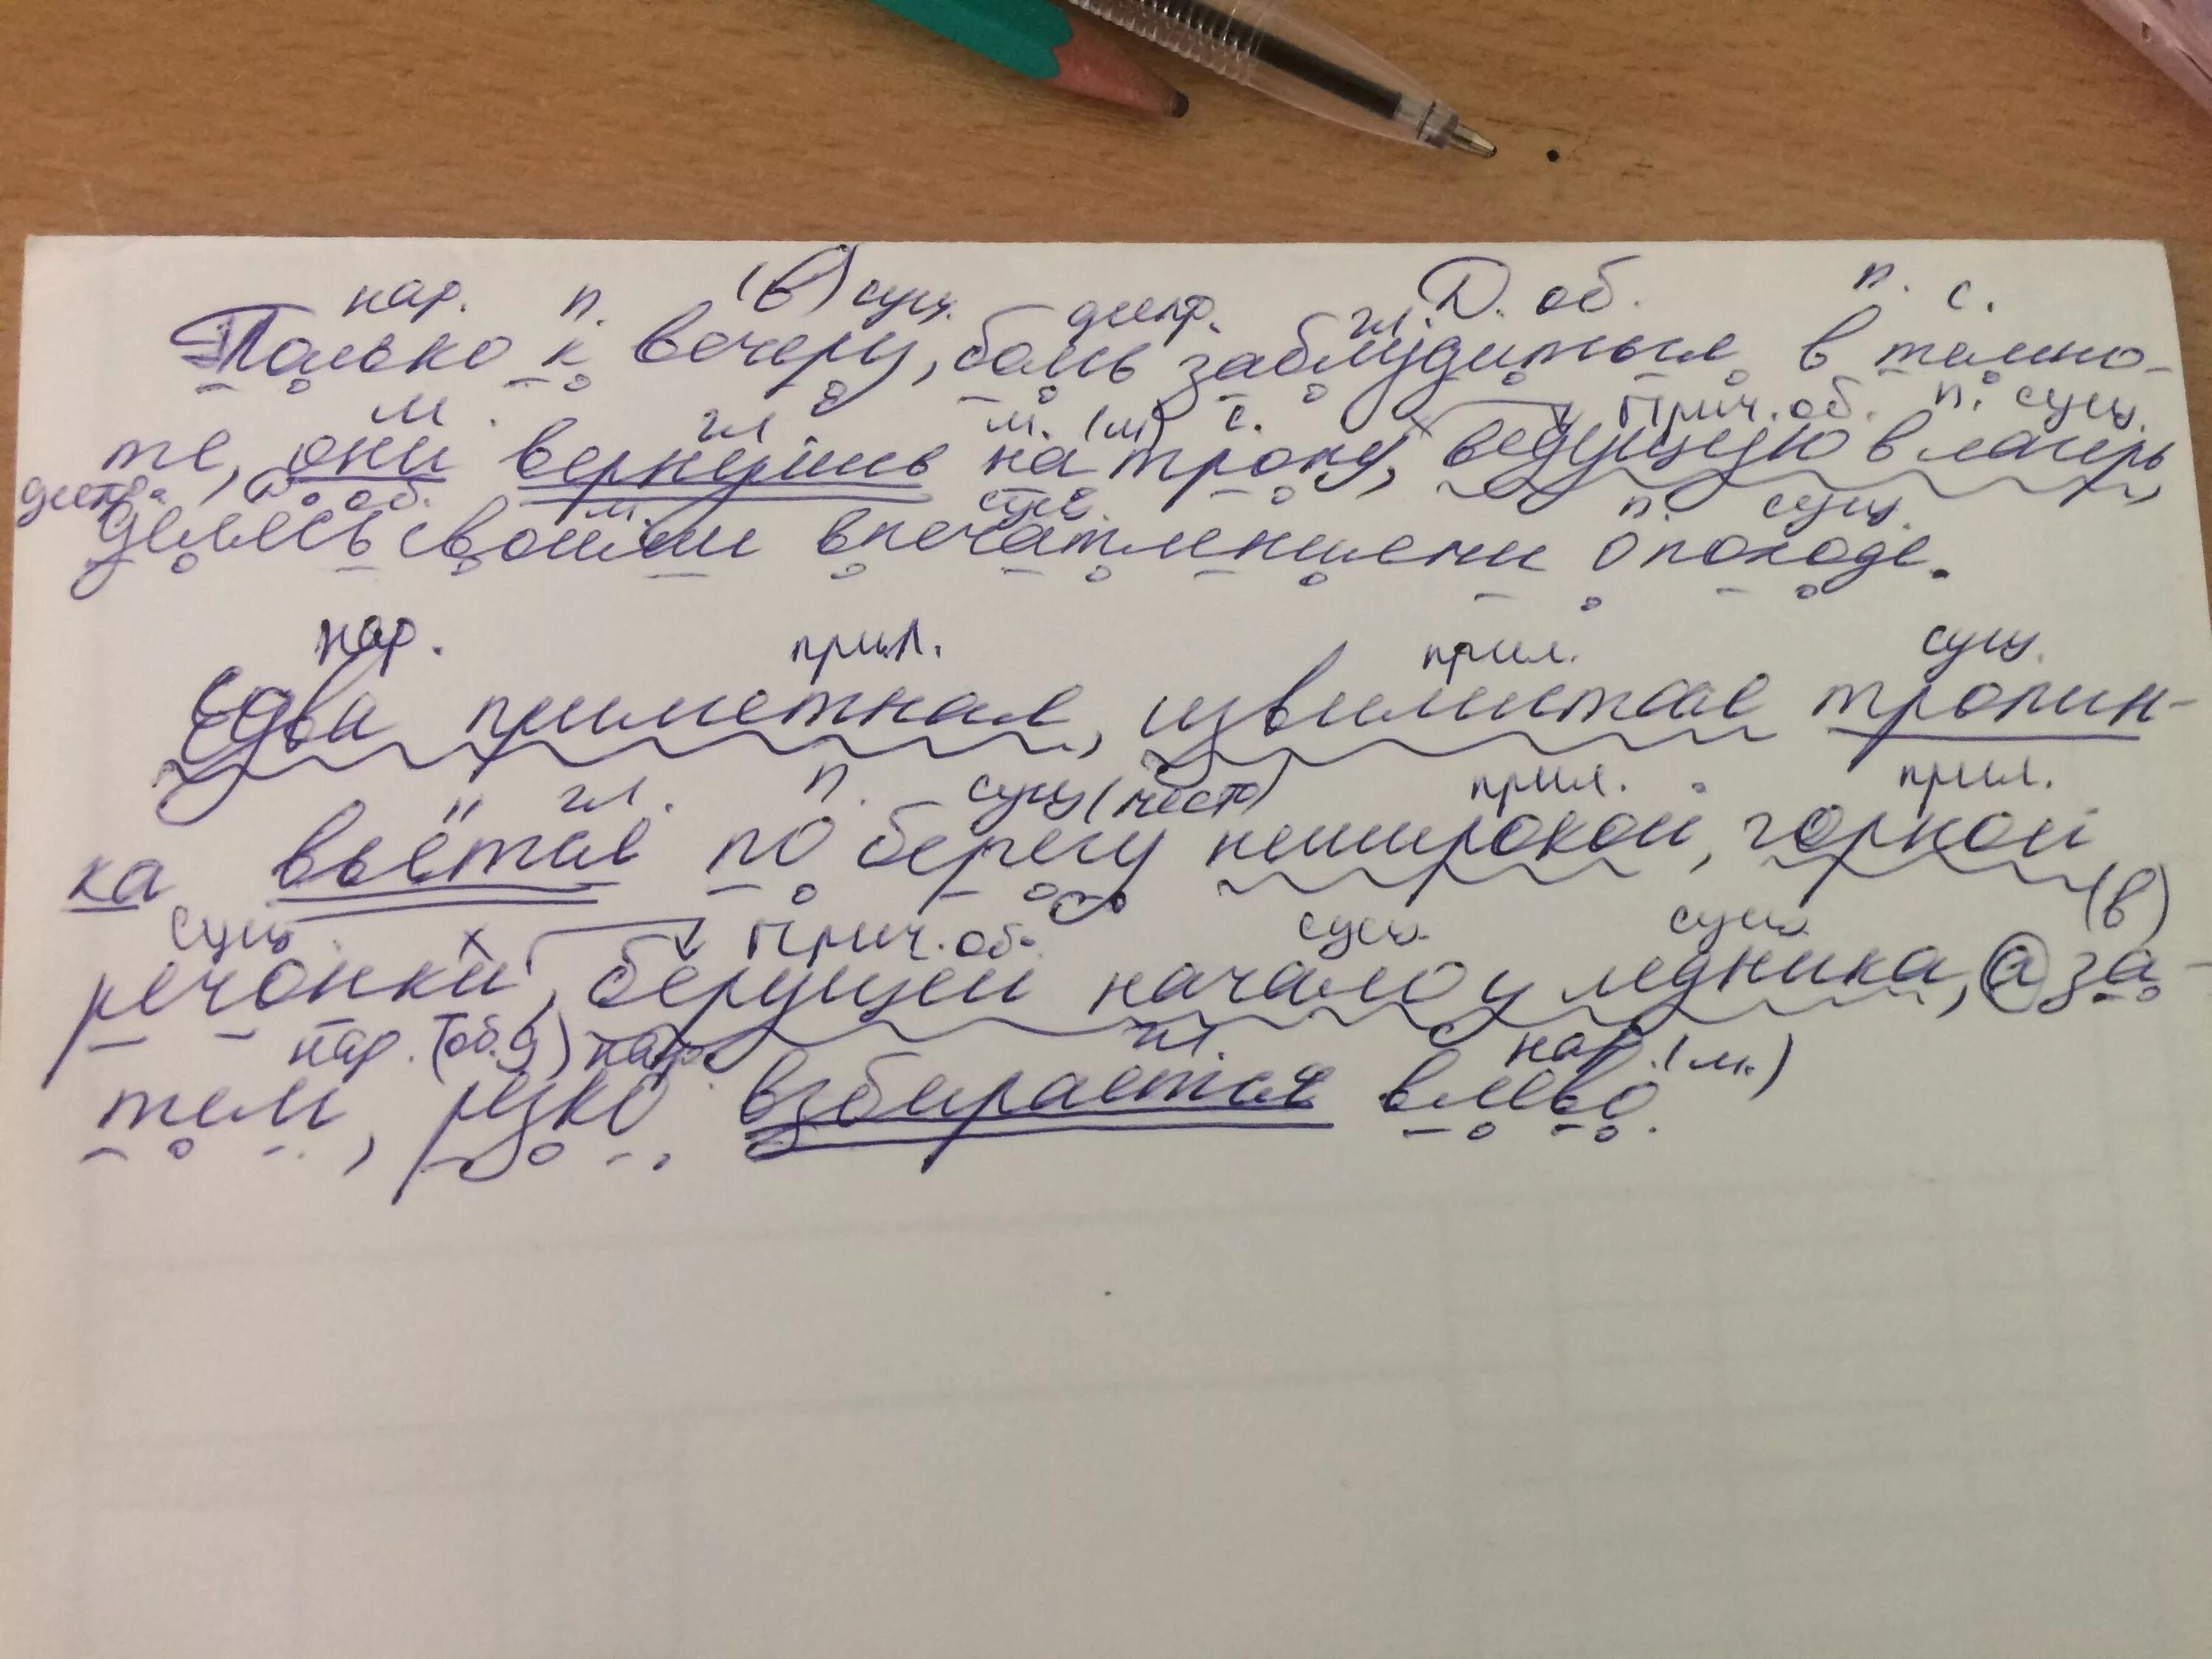 нар. п. (в) сущ. деепр. гл. Д. об. п. с.
Только к вечеру, боясь заблудиться в темно-
м. гл м. (м) с. х Прич. об. п. сущ.
те, они вернулись на тропу, ведущую в лагерь,
деепр. Д. об. м. сущ. п. сущ.
делясь своими впечатлениями о походе.
нар. прил. прил. сущ.
Едва приметная, извилистая тропин-
гл. п. сущ (мест) прил. прил.
ка вьётся по берегу неширокой, горной
сущ. х Прич. об. сущ. сущ. (в)
речонки, берущей начало у ледника, а за-
нар. (об. д) нар. гл. нар. (м.)
тем, резко взбирается влево.